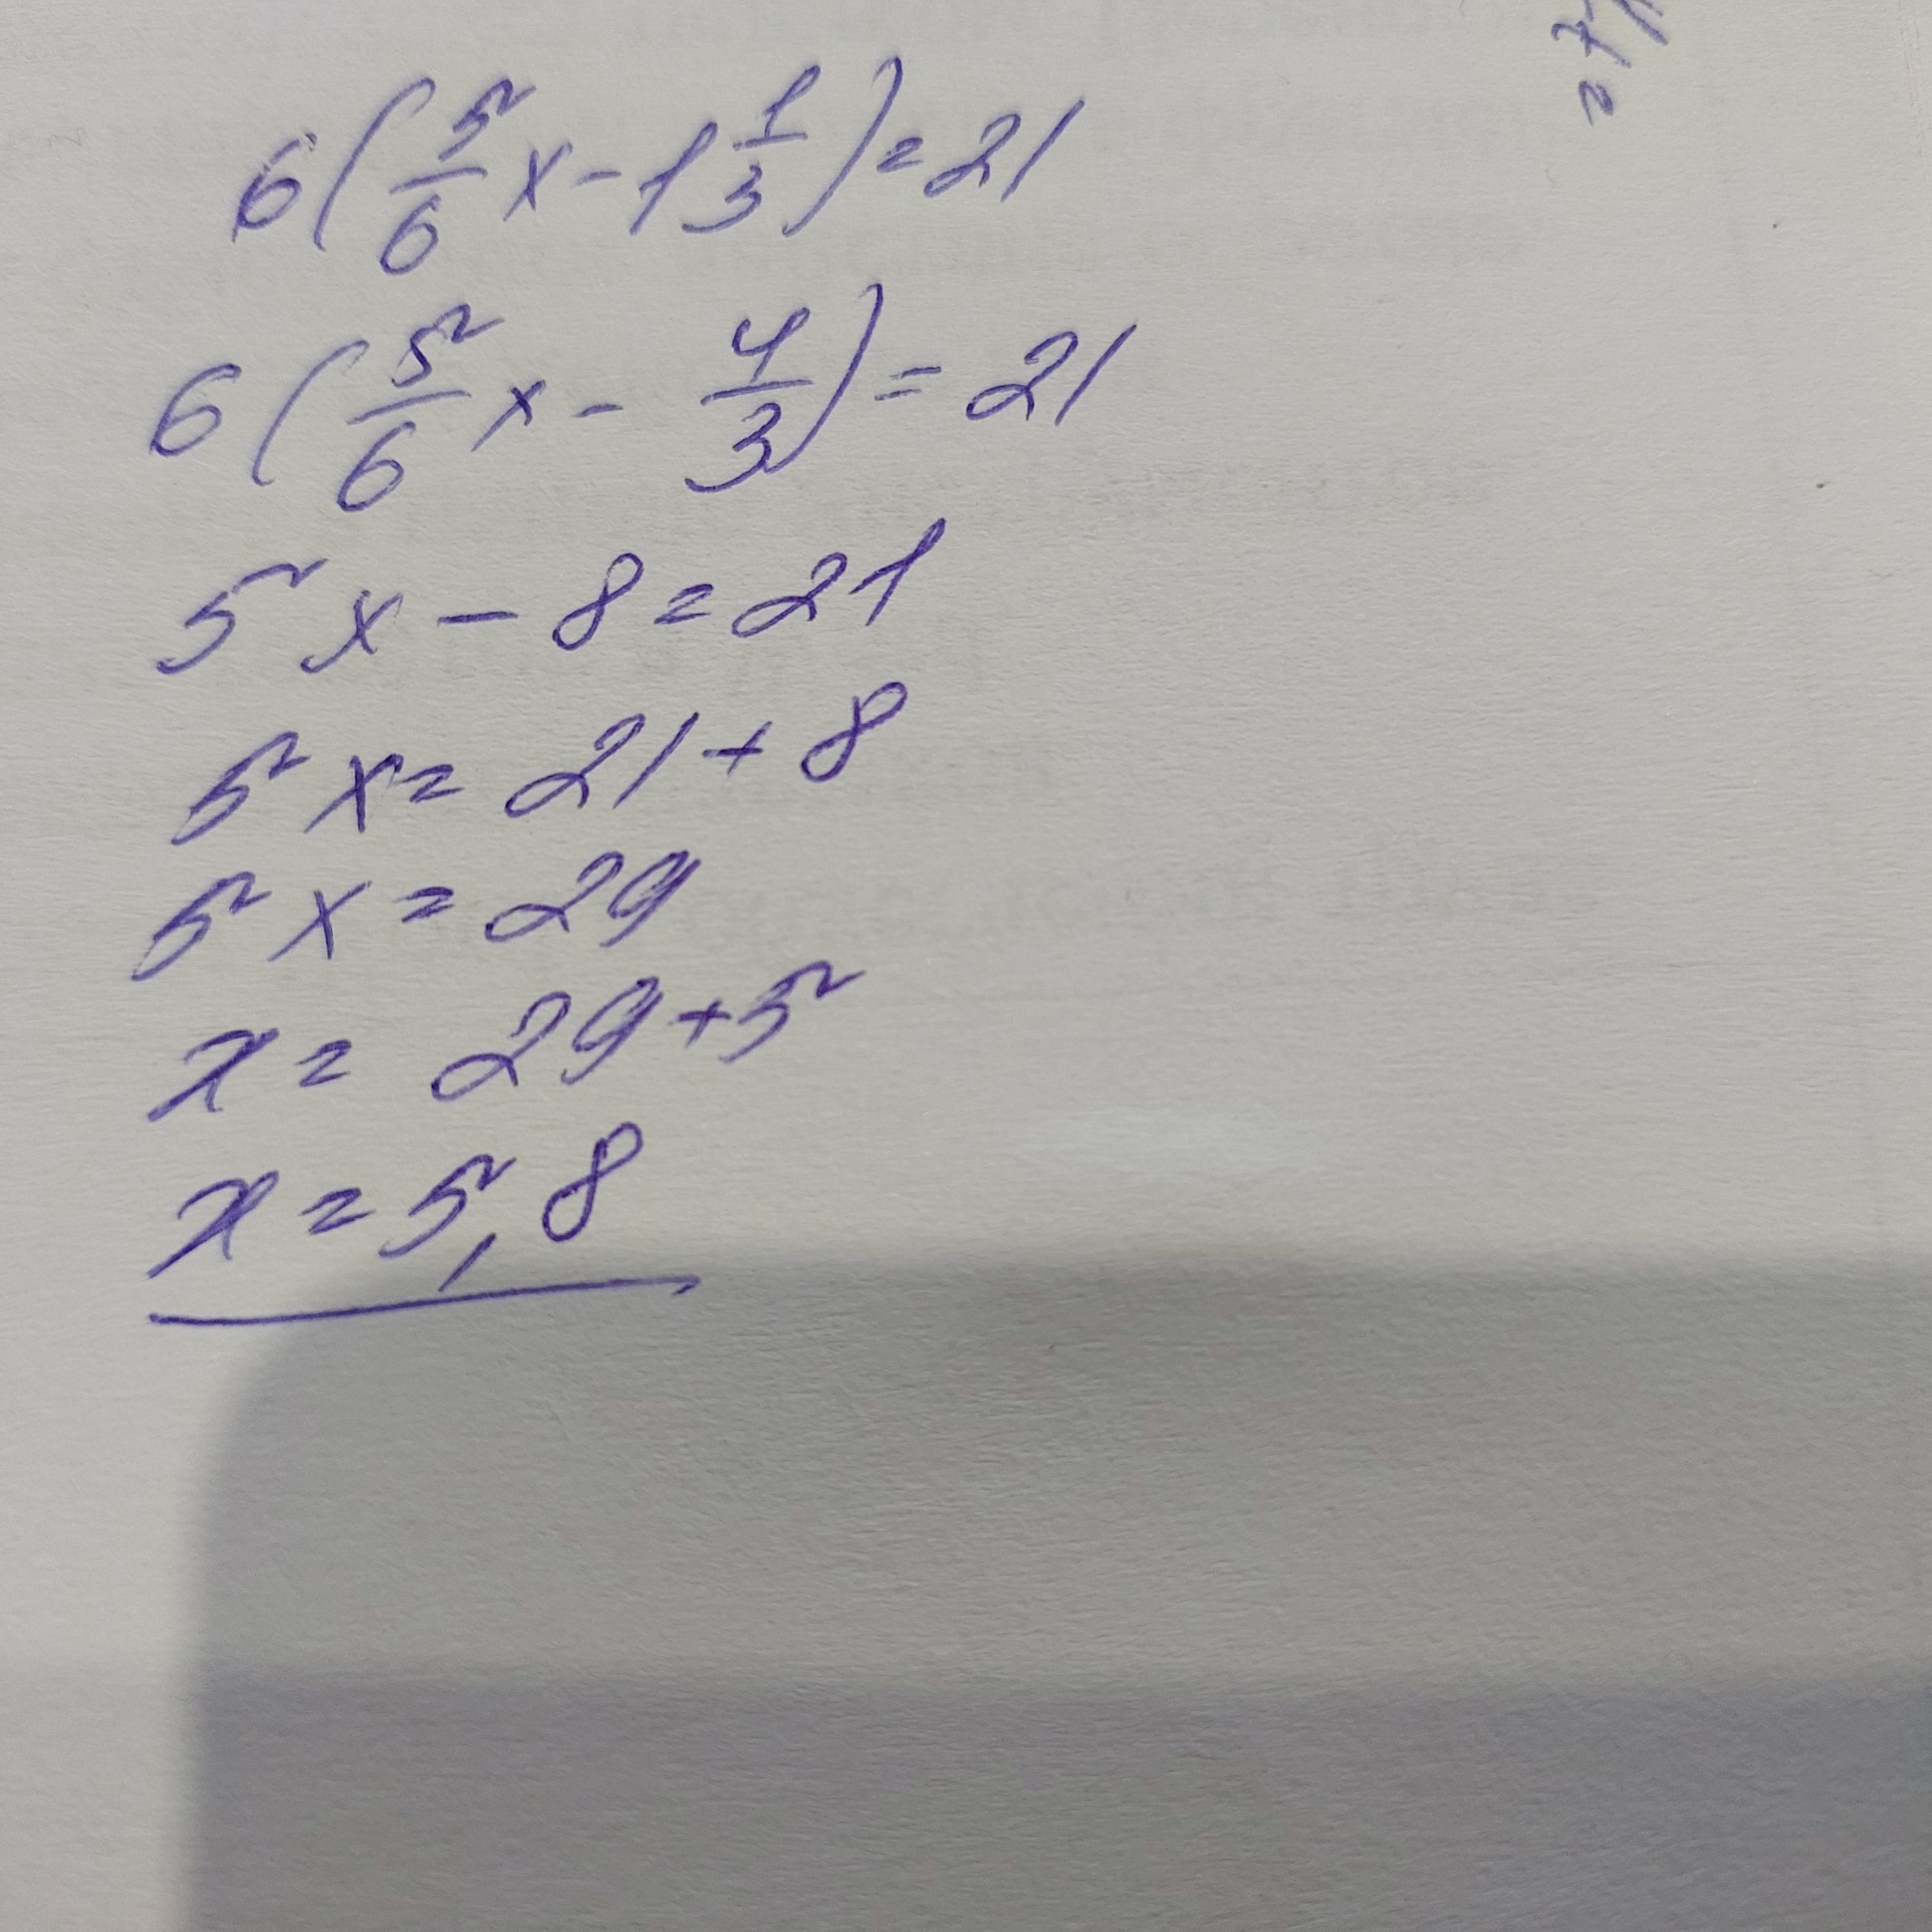 6(5/6 x - 1 1/3) = 21
6(5/6 x - 4/3) = 21
5x - 8 = 21
5x = 21 + 8
5x = 29
x = 29 + 5
x = 5,8